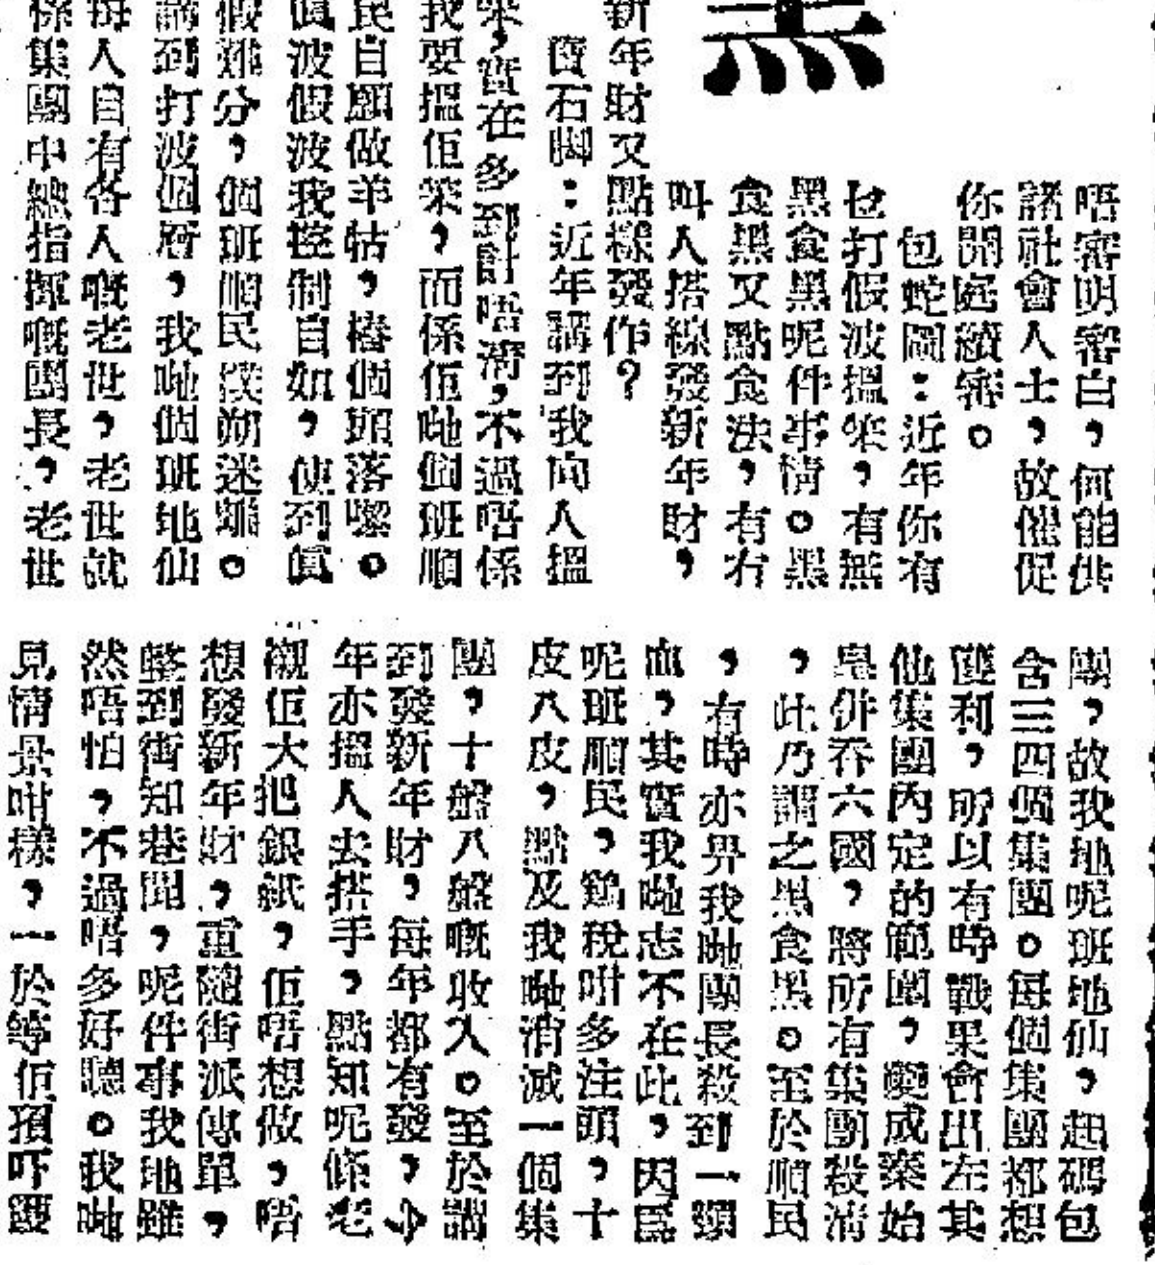 黑
唔審明審白，何能供
諸社會人士，故催促
你開庭續審。
包蛇圖：近年你有
乜打假波搵笨，有無
黑食黑呢件事情。黑
食黑又點食法，有冇
叫人搭線發新年財，
新年財又點樣發作？
寶石脚：近年講到我向人搵
笨，實在多到計唔淸，不過唔係
我要搵佢笨，而係佢哋個班順
民自願做羊牯，樁個頭落嚟。
眞波假波我控制自如，使到眞
假難分，個班順民撲朔迷離。
講到打波個層，我哋個班地仙
每人自有各人嘅老世，老世就
係集團中總指揮嘅團長，老世
團，故我地呢班地仙，起碼包
含三四個集團。每個集團都想
獲利，所以有時戰果會出左其
他集團內定的範圍，變成秦始
皇併吞六國，將所有集團殺淸
，此乃謂之黑食黑。至於順民
，有時亦畀我哋團長殺到一頸
血，其實我哋志不在此，因爲
呢班順民，鷄稅咁多注頭，十
皮八皮，點及我哋消滅一個集
團，十盤八盤嘅收入。至於講
到發新年財，每年都有發，今
年亦搵人去搭手，點知呢條老
襯佢大把銀紙，佢唔想做，唔
想發新年財，重隨街派傳單，
整到街知巷聞，呢件事我地雖
然唔怕，不過唔多好聽。我哋
見情景咁樣，一於等佢預吓要